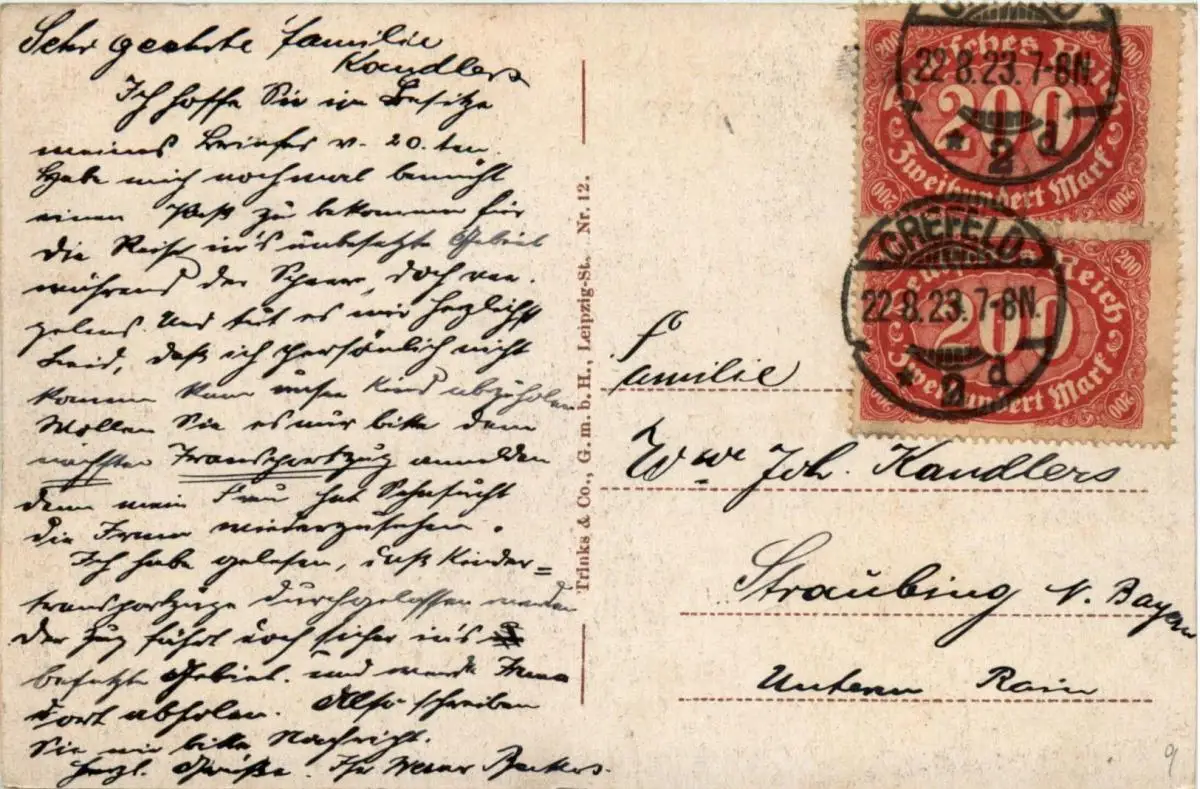 Sehr geehrte Familie
Kandlers
Ich hoffe Sie im Besitze
meines Briefes v. 20. ten.
Habe mich nochmal bemüht
einen Paß zu bekommen für
die Reise in's unbesetzte Gebiet
während der Sperre, doch ver-
gebens. Und tut es mir herzlichst
Leid, daß ich persönlich nicht
kommen kann unser Kind abzuholen
Wollen Sie es nur bitte dem
nächsten Transportzug anmelden
denn mein Frau hat Sehnsucht
die Irma wiederzusehen.
Ich habe gelesen, daß Kinder=
transportzüge durchgelassen werden
der Zug fährt doch sicher in's
besetzte Gebiet. und werde Irma
dort abholen. Also schreiben
Sie mir bitte Nachricht.
Herzl. Grüße. Ihr Werner Beckers.
Trinks & Co., G. m. b. H., Leipzig-St. Nr. 12.
Familie
Wwe Joh. Kandlers
Straubing N. Bayern
Unterm Rain
200 Deutsches Reich 200
200
Zweihundert Mark
200 200
22.8.23. 7-8N
* 2 d
Deutsches Reich 200
200
Zweihundert Mark
200 200
CREFELD
22.8.23. 7-8N.
* 2 d
9